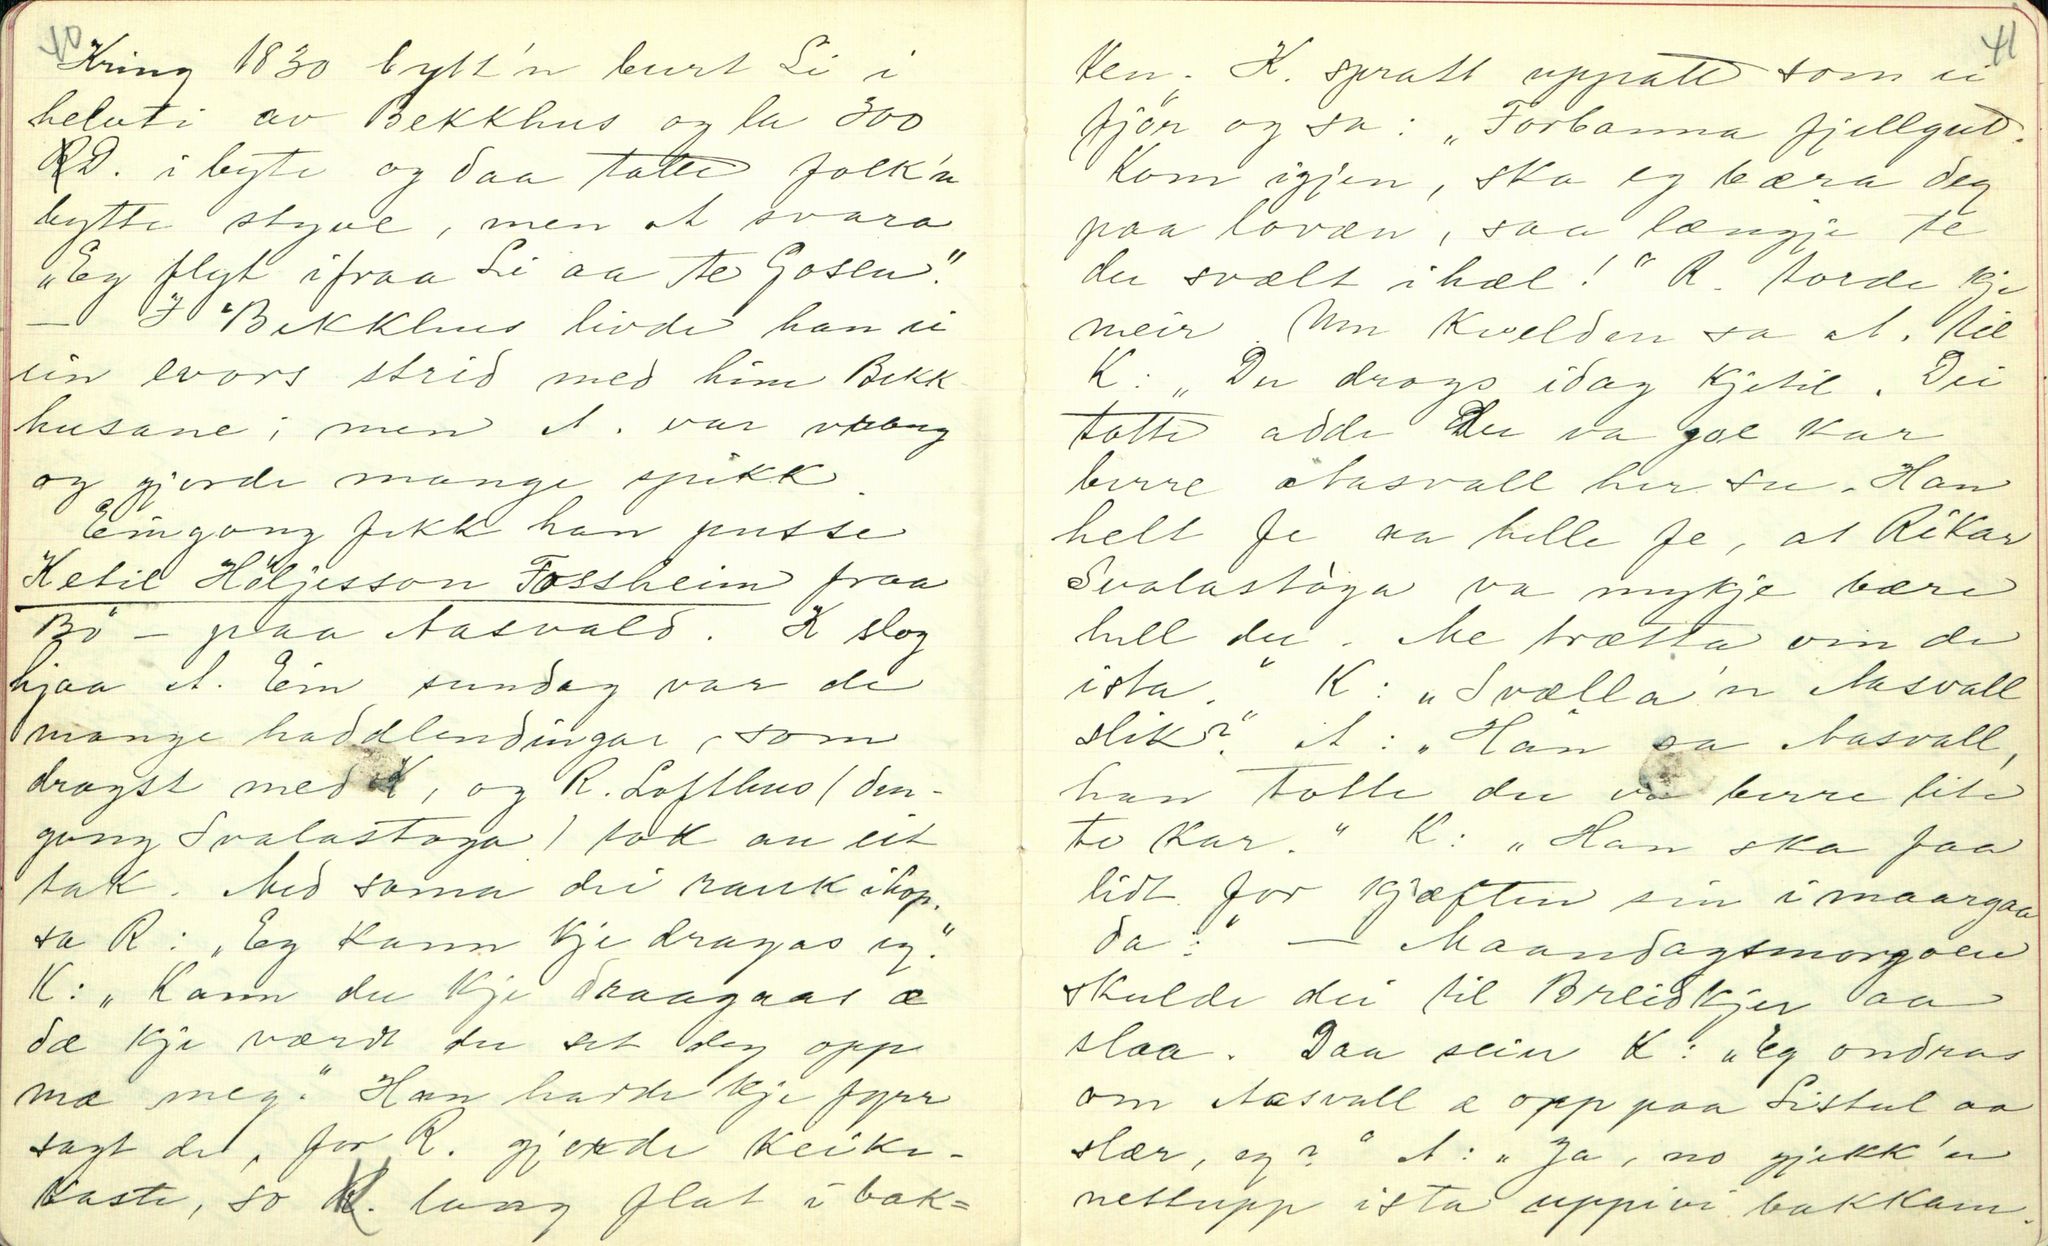 40
Kring 1830 bytt'n burt Li i
heluti av Bekkhus og la 300
RD. i byte og daa totte folk'n
bytte styvt, men A svara
„Eg flyt ifraa Li aa te Gosen."
— I Bekkhus livde han i
ein evors strid med hine Bekk
husane; men A. var vrang
og gjorde mange spikk.
Eingong fekk han pusse
Ketil Höljesson Fossheim fraa
Bö — paa Aasvald. K slog
hjaa A. Ein sundag var de
mange haddlendingar, som
drogst med K, og R. Lofthus (den-
gong Svalastoga) tok au eit
tak. Med soma dei rauk ihop.
sa R: „Eg kann kje dragas eg."
K: „Kann du kje draagaas æ
dæ kje værdt du set deg opp
mæ meg." Han hadde kje fyrr
sagt de, for R. gjorde keike-
kaste, so K. laag flat i bak=
41
ken. K. spratt uppatt som ei
fjör og sa: „Forbanna fjellgut.
Kom igjen, ska eg bæra deg
paa lovæn, saa længje te
du svælt ihæl!" R. torde kje
meir. Um kvelden sa A. til
K: „Du drogs idag Kjetil. Dei
totte adde du va goe kar
berre Aasvall her su. Han
helt fe aa telle fe, at Rikar
Svalastòga va mykje bære
hell du. Me trætta om de
ista." K: „Svælla'n Aasvall
slik?" A: „Han sa Aasvall,
han totte du va berre lite
te kar." K: „Han ska faa
lidt for kjæften sin i maargaa
da:" — Maandagsmorgoen
skulde dei til Breidkjer aa
slaa. Daa seier K: „Eg ondras
om Aasvall æ opp paa Listul aa
slær, eg?" A: „Ja, no gjekk'n
nettupp ista uppivi bakkan.